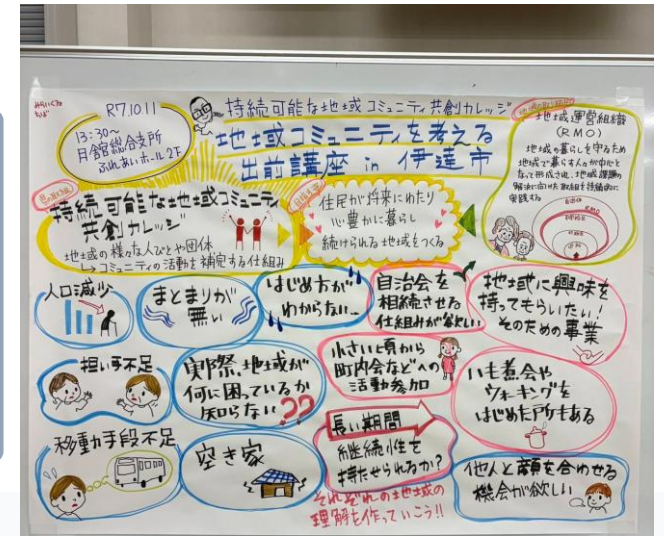 R7.10.11
13:30~
月舘総合支所
ふれあいホール2F
持続可能な地域コミュニティ共創カレッジ
地域コミュニティを考える
出前講座 in 伊達市
地域運営組織
(RMO)
地域の暮らしを守るため
地域で暮らす人々が中心と
なって形成され、地域課題の
解決に向けた取組を持続的に
実践する
RMO
持続可能な地域コミュニティ
共創カレッジ
地域の様々な人びとや団体
↳コミュニティの活動を補完する仕組み
住民が将来にわたり
心豊かに暮らし
続けられる地域をつくる
人口減少
まとまりが
無い
はじめ方が
わからない…
自治会を
相続させる
仕組みが欲しい
地域に興味を
持ってもらいたい!
そのための事業
担い手不足
実際、地域が
何に困っているか
知らない??
小さい頃から
町内会などへの
活動参加
いも煮会や
ウォーキングを
はじめた所もある
移動手段不足
空き家
長い期間
継続性を
持たせられるか?
他人と顔を合わせる
機会が欲しい
それぞれの地域の
理解を作っていこう!!